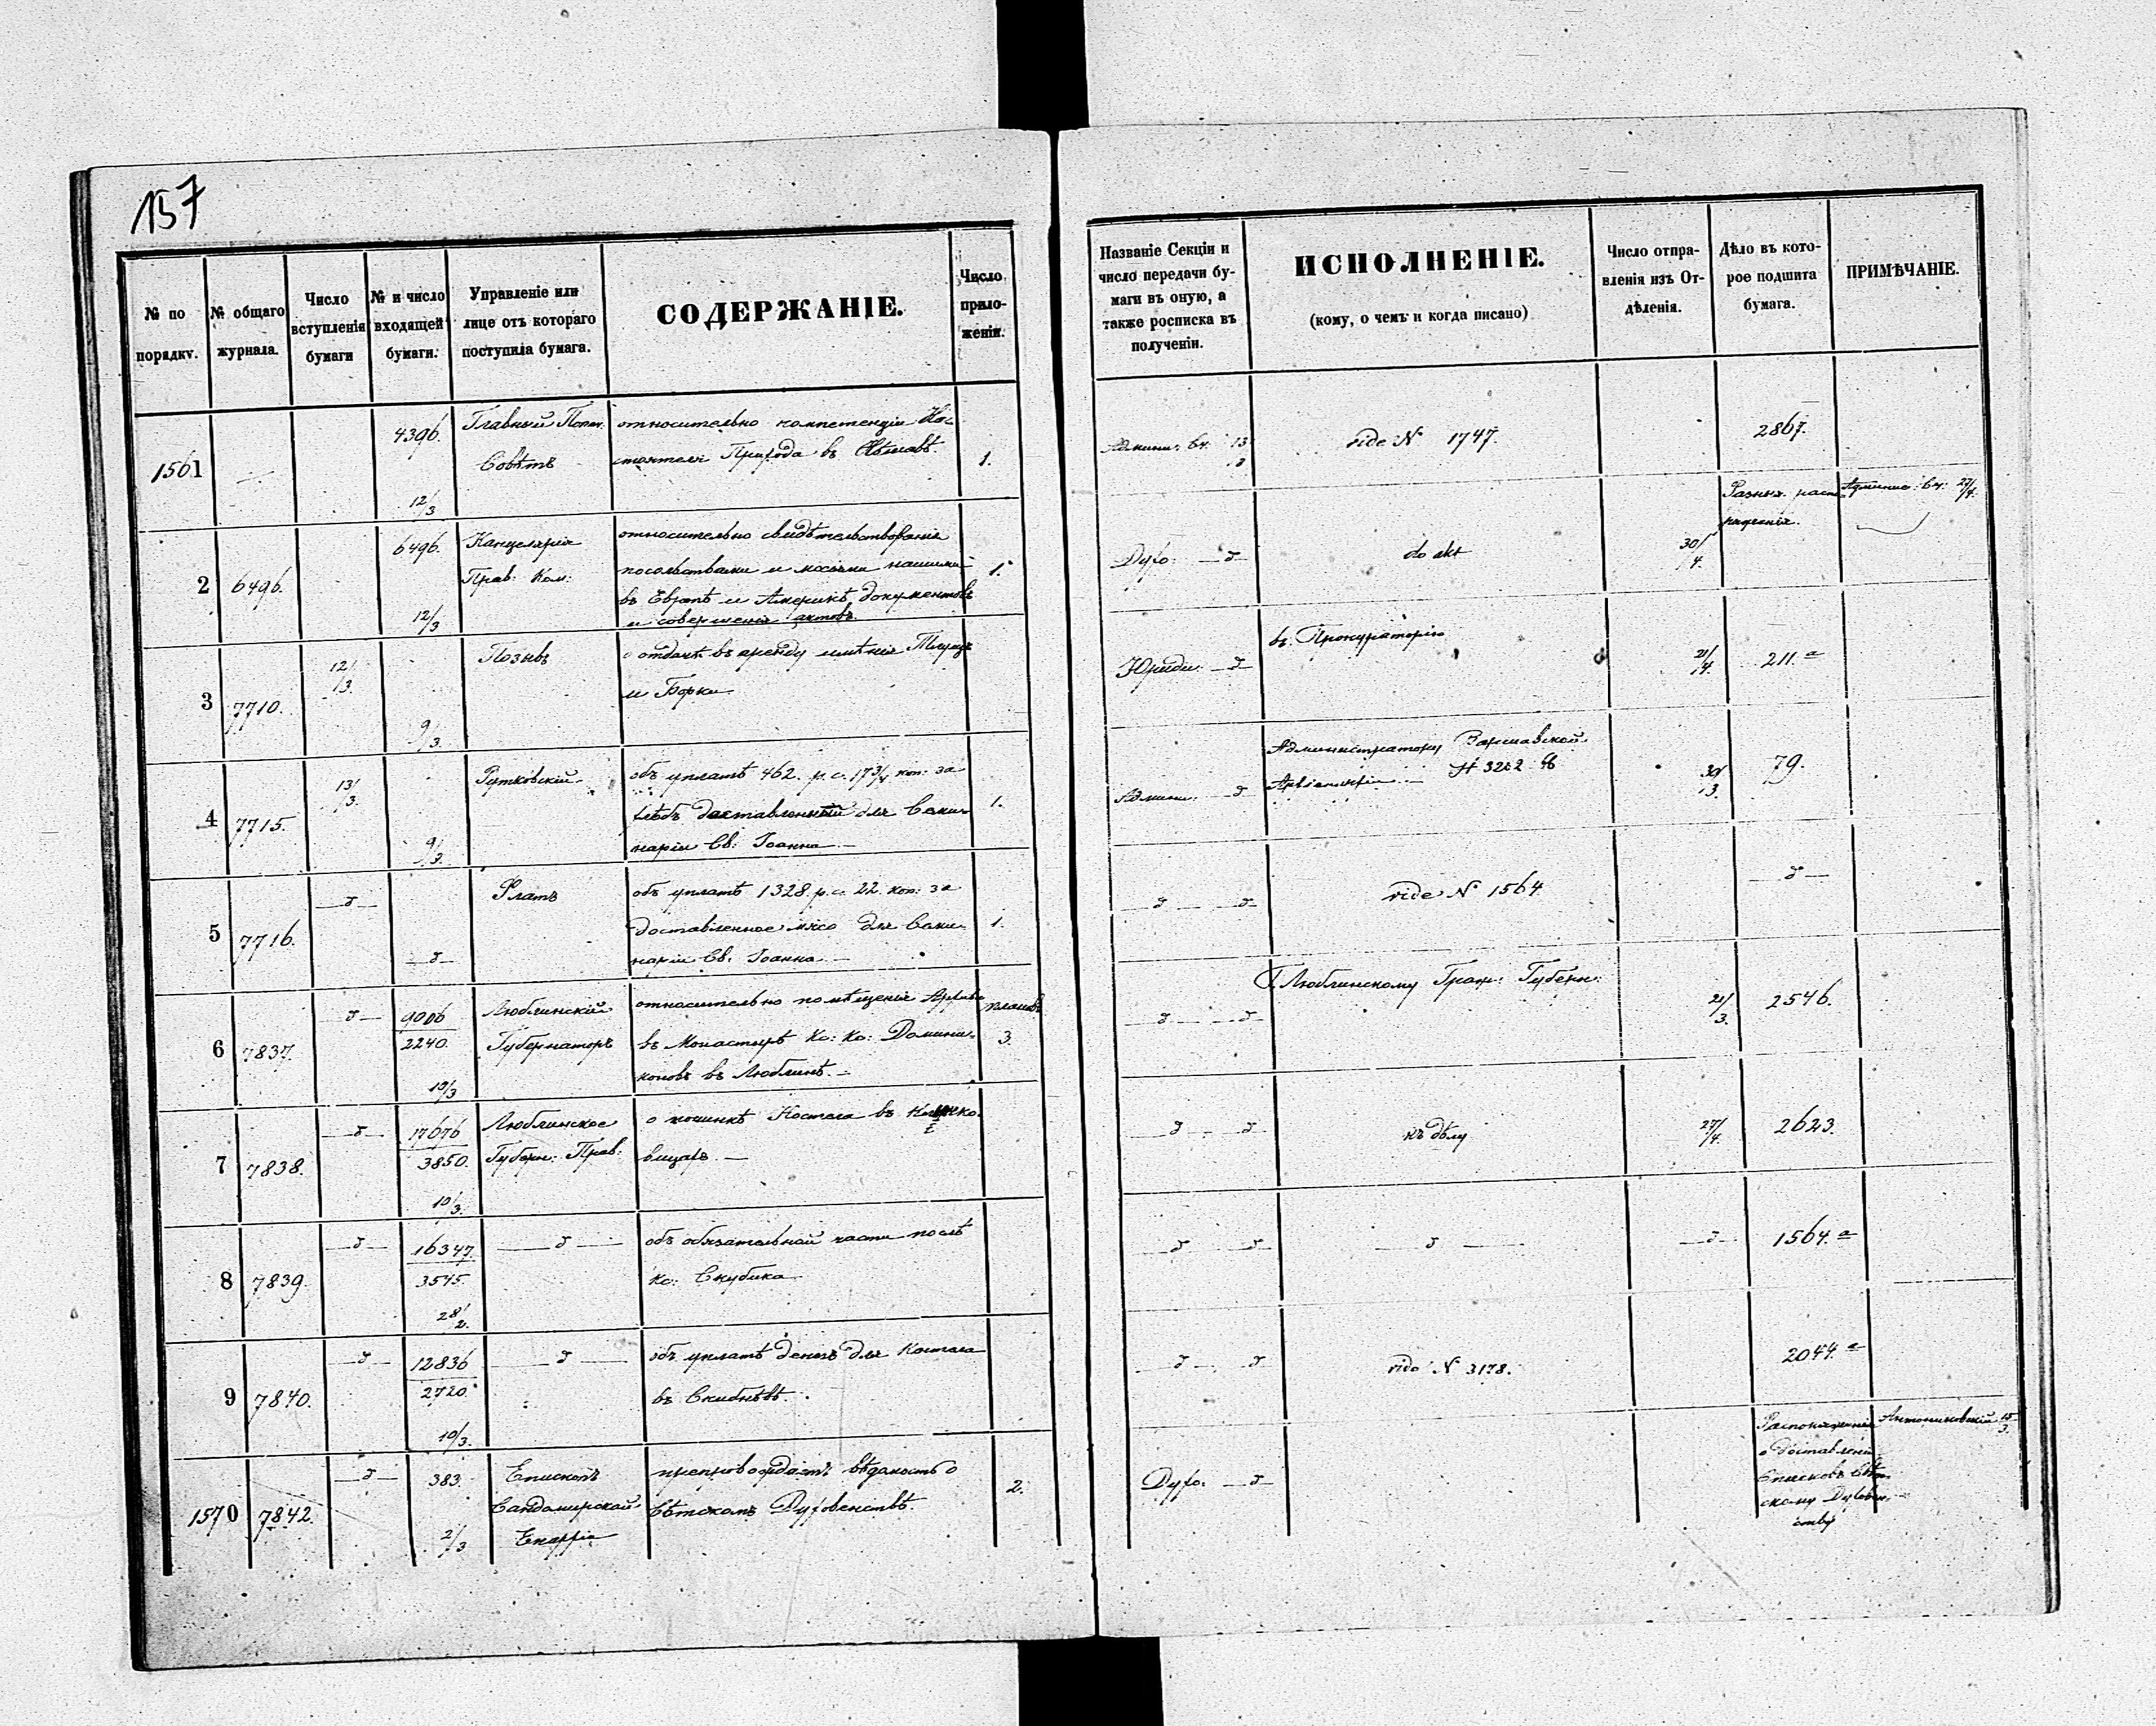 157
№ по порядку.
№ общаго журнала.
Число вступленія бумаги
№ и число входящей бумаги.
Управленіе или лице отъ котораго поступила бумага.
СОДЕРЖАНІЕ.
Число приложеній.
Названіе Секціи и число передачи бумаги въ оную, а также росписка въ полученіи.
ИСПОЛНЕНІЕ.
(кому, о чемъ и когда писано)
Число отправленія изъ Отдѣленія.
Дѣло въ которое подшита бумага.
ПРИМѢЧАНІЕ.
1561
4396.
12/3
Главный Попеч.
Совѣтъ
относительно компетенціи На-
стоятеля Прихода въ
1.
Админи: Сч. 13/3
vide N 1747.
2867.
2 6496.
6496.
12/3
Канцелярія
Прав: Ком:
относительно свидѣтельствованія
посольствами и миссіями нашими
въ Европѣ и Америкѣ документовъ
и совершенія актовъ.
1.
Духо: — d —
do akt
30/4.
Разныя распо-
ряженія.
Админис: Сч: 27/4.
3 7710.
12/3.
9/3.
Позывъ
о отдачѣ въ аренду имѣнія
и Борки
Юриди: — d —
въ Прокураторію
21/4.
211. a
4 7715.
13/3.
9/3.
Рутковскій
объ уплатѣ 462. р. с. 17 3/4 коп: за
хлѣбъ доставленный для Семи-
наріи Св. Іоанна —
1.
Админи: — d
Администратору Варшавской
Архіепархіи — N 3262
30/3.
79.
5 7716.
— d —
— d —
Платъ
объ уплатѣ 1328. р. с. 22. коп: за
доставленное мясо для Семи-
наріи Св. Іоанна —
1.
— d — — d —
vide N 1564
— d —
6 7837.
— d —
9006
2240.
10/3
Люблинскій
Губернаторъ
относительно помѣщенія Архива
въ Монастырѣ Кс: Кс: Домини-
кановъ въ Люблинѣ. —
плановъ
3.
— d — — d
Г. Люблинскому Граж: Губерн:
21/3.
2546.
7 7838.
— d —
17676
3850.
10/3.
Люблинское
Губерн: Прав:
о починкѣ Костела въ
вицахъ. —
— d — — d —
къ дѣлу
27/4.
2623.
8 7839.
— d —
16347.
3545.
28/2.
— d —
объ обязательной части послѣ
Кс: Скубика
— d — d —
— d —
— d —
1564. a
9 7840.
— d —
12836
2720.
10/3.
— d —
объ уплатѣ денегъ для Костела
въ Скибнѣвѣ.
— d — d —
vide N 3178.
2044. a
1570 7842.
— d —
383.
2/3
Епископъ
Сандомирской
Епархіи
препровождаетъ вѣдомость о
Свѣтскомъ Духовенствѣ
2.
Духо: — d —
Распоряженія
о доставленіи
списковъ Свѣт-
скому Духовен-
ству
Антониковскій 15/3.